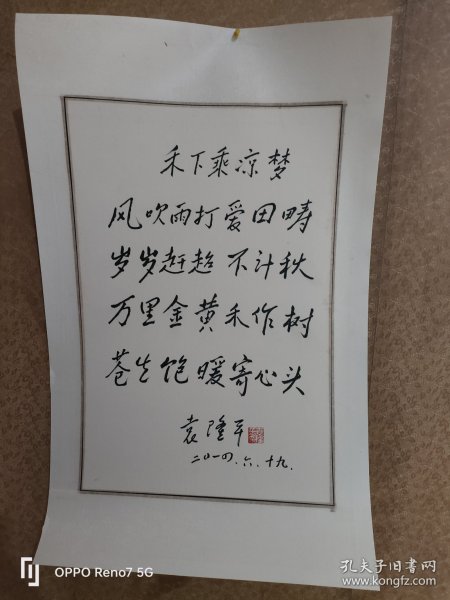 禾下乘凉梦
风吹雨打爱田畴
岁岁赶超不计秋
万里金黄禾作树
苍生饱暖寄心头
袁隆平
二〇一〇.六.十九.
OPPO Reno7 5G
孔夫子旧书网
www.kongfz.com